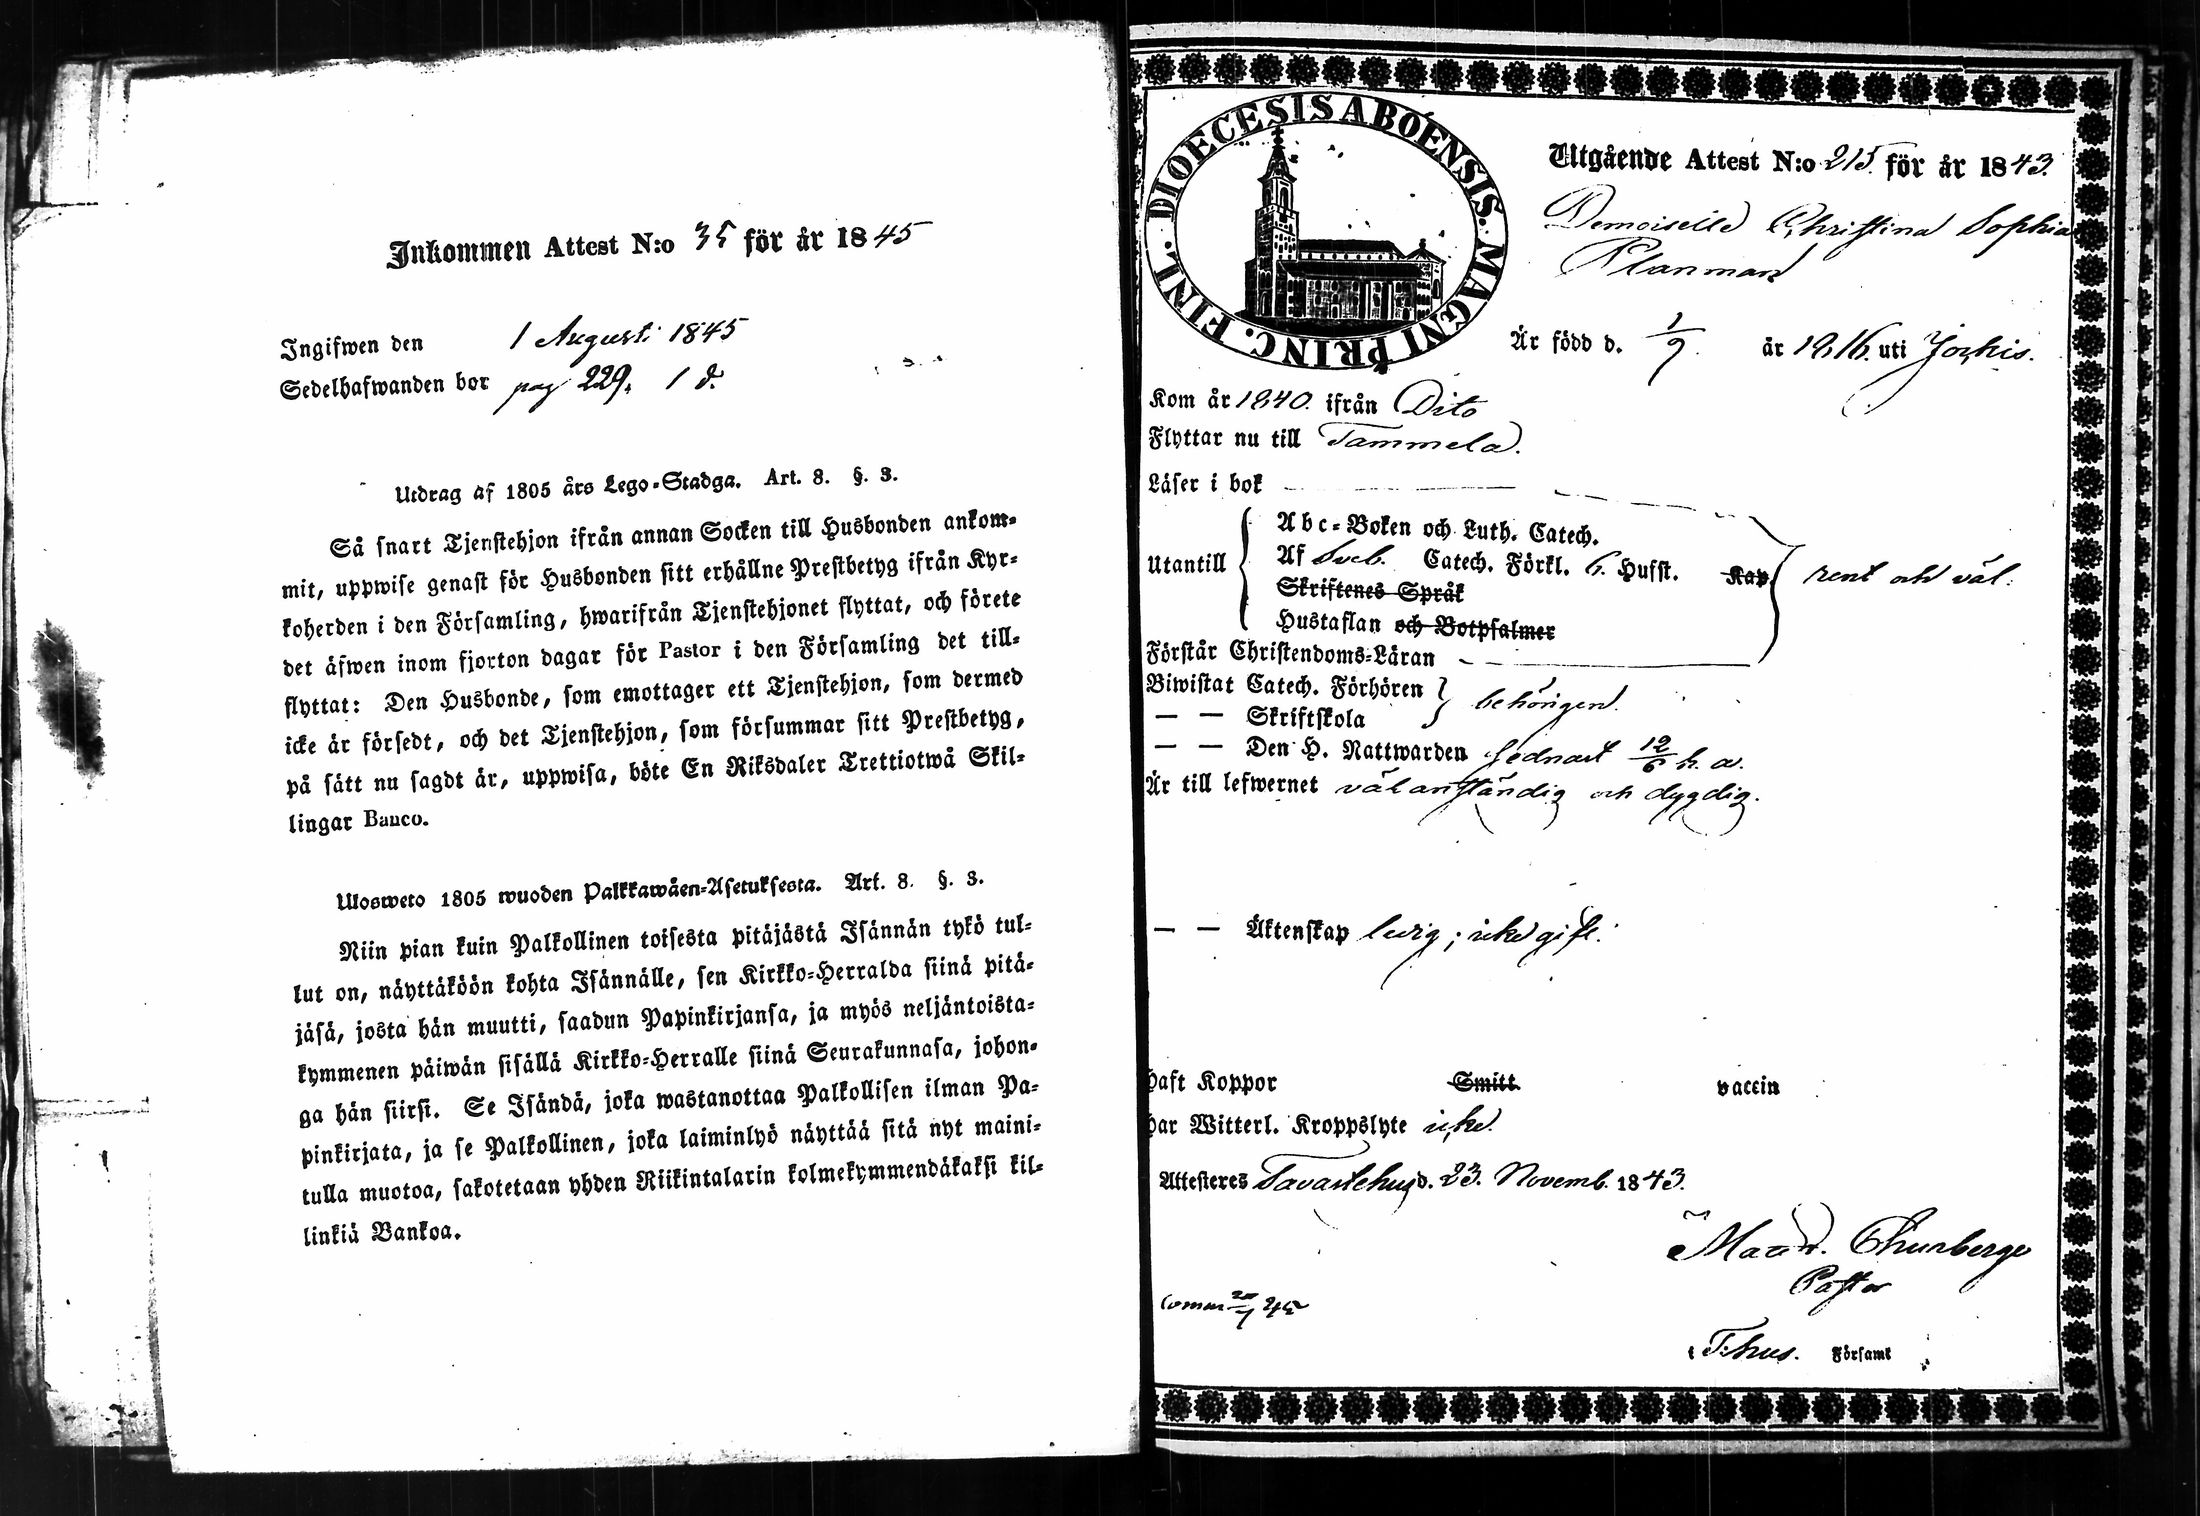 Inkommen Attest N:o 35 för år 1845
Ingifwen den 1 Augusti 1845
Sedelhafwanden bor pag 229. 1 d.
Utdrag af 1805 års Lego-Stadga. Art. 8. §. 3.
Så snart Tjenstehjon ifrån annan Socken till Husbonden ankom-
mit, uppwise genast för Husbonden sitt erhållne Prestbetyg ifrån Kyr-
koherden i den Församling, hwarifrån Tjenstehjonet flyttat, och förete
det äfwen inom fjorton dagar för Pastor i den Församling det till-
flyttat: Den Husbonde, som emottager ett Tjenstehjon, som dermed
icke är försedt, och det Tjenstehjon, som försummar sitt Prestbetyg,
på sätt nu sagdt är, uppwisa, böte En Riksdaler Trettiotwå Skil-
lingar Banco.
Ulosweto 1805 wuoden Palkkawäen-Asetuksesta. Art. 8. §. 3.
Niin pian kuin Palkollinen toisesta pitäjästä Isännän tykö tul-
lut on, näyttäköön kohta Isännälle, sen Kirkko-Herralda siinä pitä-
jäsä, josta hän muutti, saadun Papinkirjansa, ja myös neljäntoista-
kymmenen päiwän sisällä Kirkko-Herralle siinä Seurakunnasa, johon-
ga hän siirsi. Se Isändä, joka wastanottaa Palkollisen ilman Pa-
pinkirjata, ja se Palkollinen, joka laiminlyö näyttää sitä nyt maini-
tulla muotoa, sakotetaan yhden Riikintalarin kolmekymmendäkaksi kil-
linkiä Bankoa.
DIOECESIS ABOENSIS. MAGNI PRINC. FINL.
Utgående Attest N:o 215. för år 1843.
Demoiselle Christina Sophia
Planman
Är född d. 1/9. år 1816. uti Jockis.
Kom år 1840. ifrån Dito
Flyttar nu till Tammela.
Läser i bok
Abc-Boken och Luth. Catech.
Utantill Af Sveb. Catech. Förkl. 6. Hufst. Kap. rent och väl.
Skriftenes Språk
Hustaflan och Botpsalmer
Förstår Christendoms-Läran
Biwistat Catech. Förhören behörigen.
— — Skriftskola
— — Den H. Nattwarden sednast 12/6 h. a.
Är till lefwernet välanständig och dygdig.
— — Äktenskap ledig; icke gift.
Haft Koppor Smitt. vaccin
Har Witterl. Kroppslyte icke.
Attesteres Tavastehus d. 23. Novemb. 1843.
Thunberg
Pastor
i T:hus. Församl